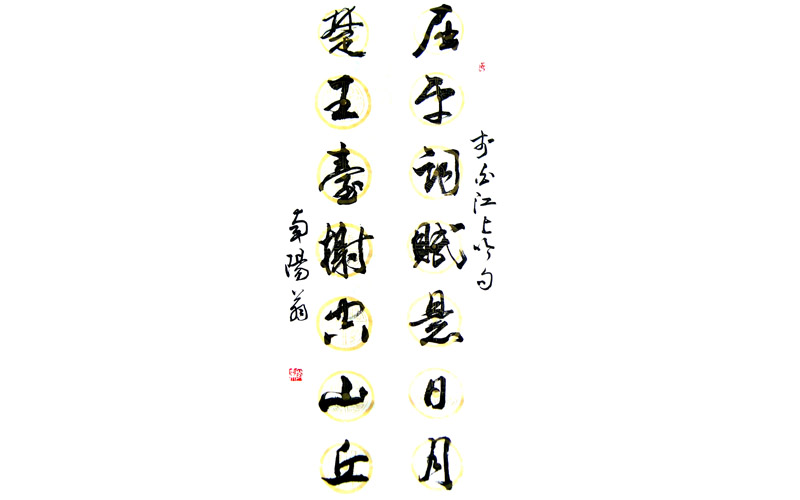 屈平詞賦悬日月
李白江上吟句
楚王臺榭空山丘
南陽翁